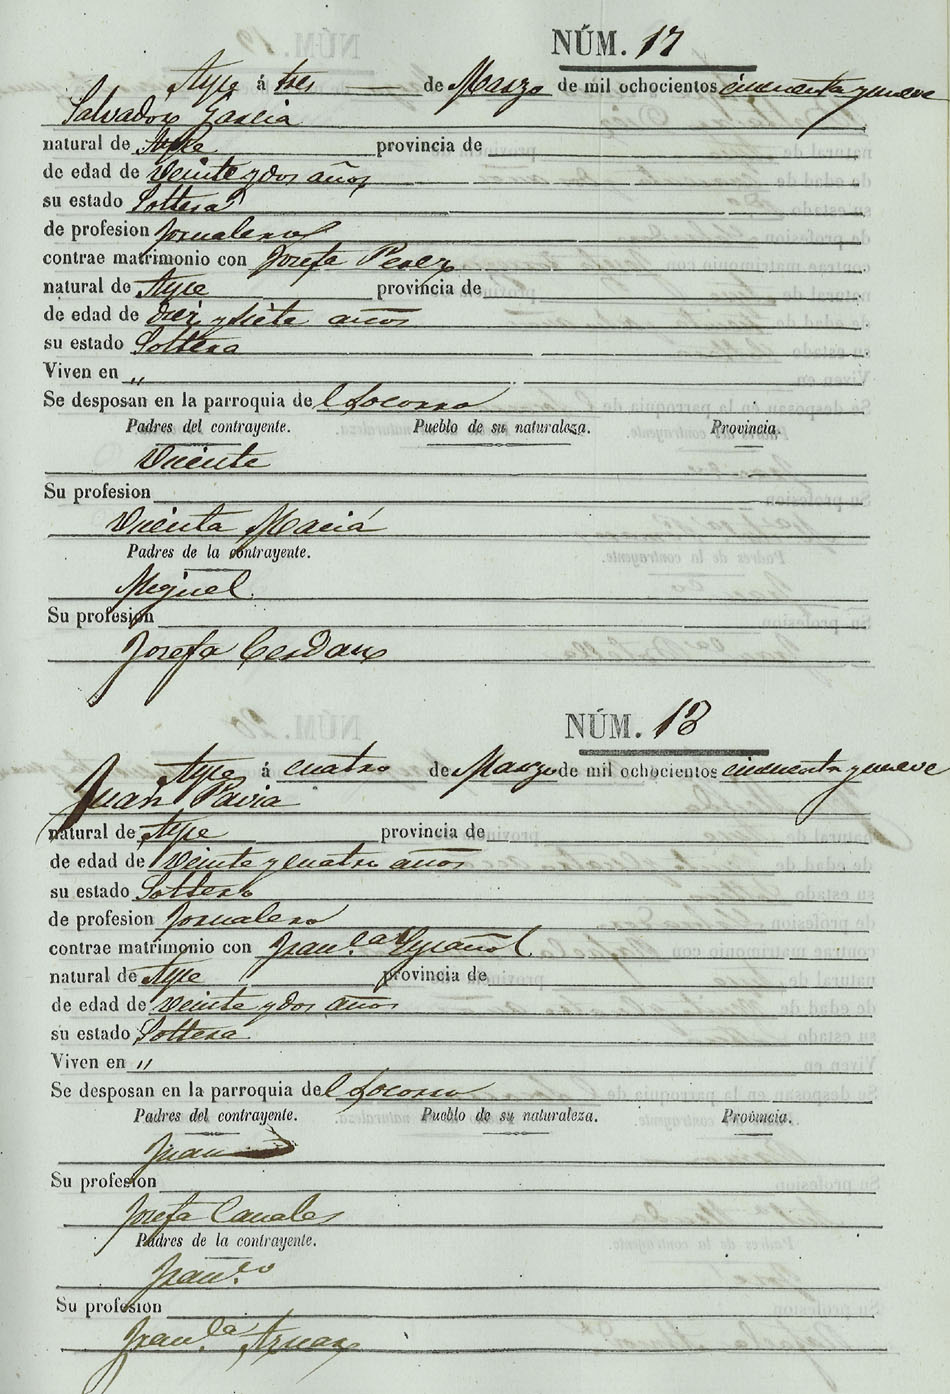 NÚM. 17
Aspe á tres de Marzo de mil ochocientos cincuenta y nueve
Salvador Garcia
natural de Aspe provincia de
de edad de Veinte y dos años
su estado Soltero
de profesion Jornalero
contrae matrimonio con Josefa Perez
natural de Aspe provincia de
de edad de diez y siete años
su estado Soltera
Viven en "
Se desposan en la parroquia del Socorro
Padres del contrayente. Pueblo de su naturaleza. Provincia.
Vicente
Su profesion
Vicenta Maciá
Padres de la contrayente.
Miguel
Su profesion
Josefa Cerdan
NÚM. 18
Aspe á cuatro de Marzo de mil ochocientos cincuenta y nueve
Juan Pavia
natural de Aspe provincia de
de edad de Veinte y cuatro años
su estado Soltero
de profesion Jornalero
contrae matrimonio con Fran.ca Español
natural de Aspe provincia de
de edad de Veinte y dos años
su estado Soltera
Viven en "
Se desposan en la parroquia del Socorro
Padres del contrayente. Pueblo de su naturaleza. Provincia.
Juan
Su profesion
Josefa Canales
Padres de la contrayente.
Fran.co
Su profesion
Fran.ca